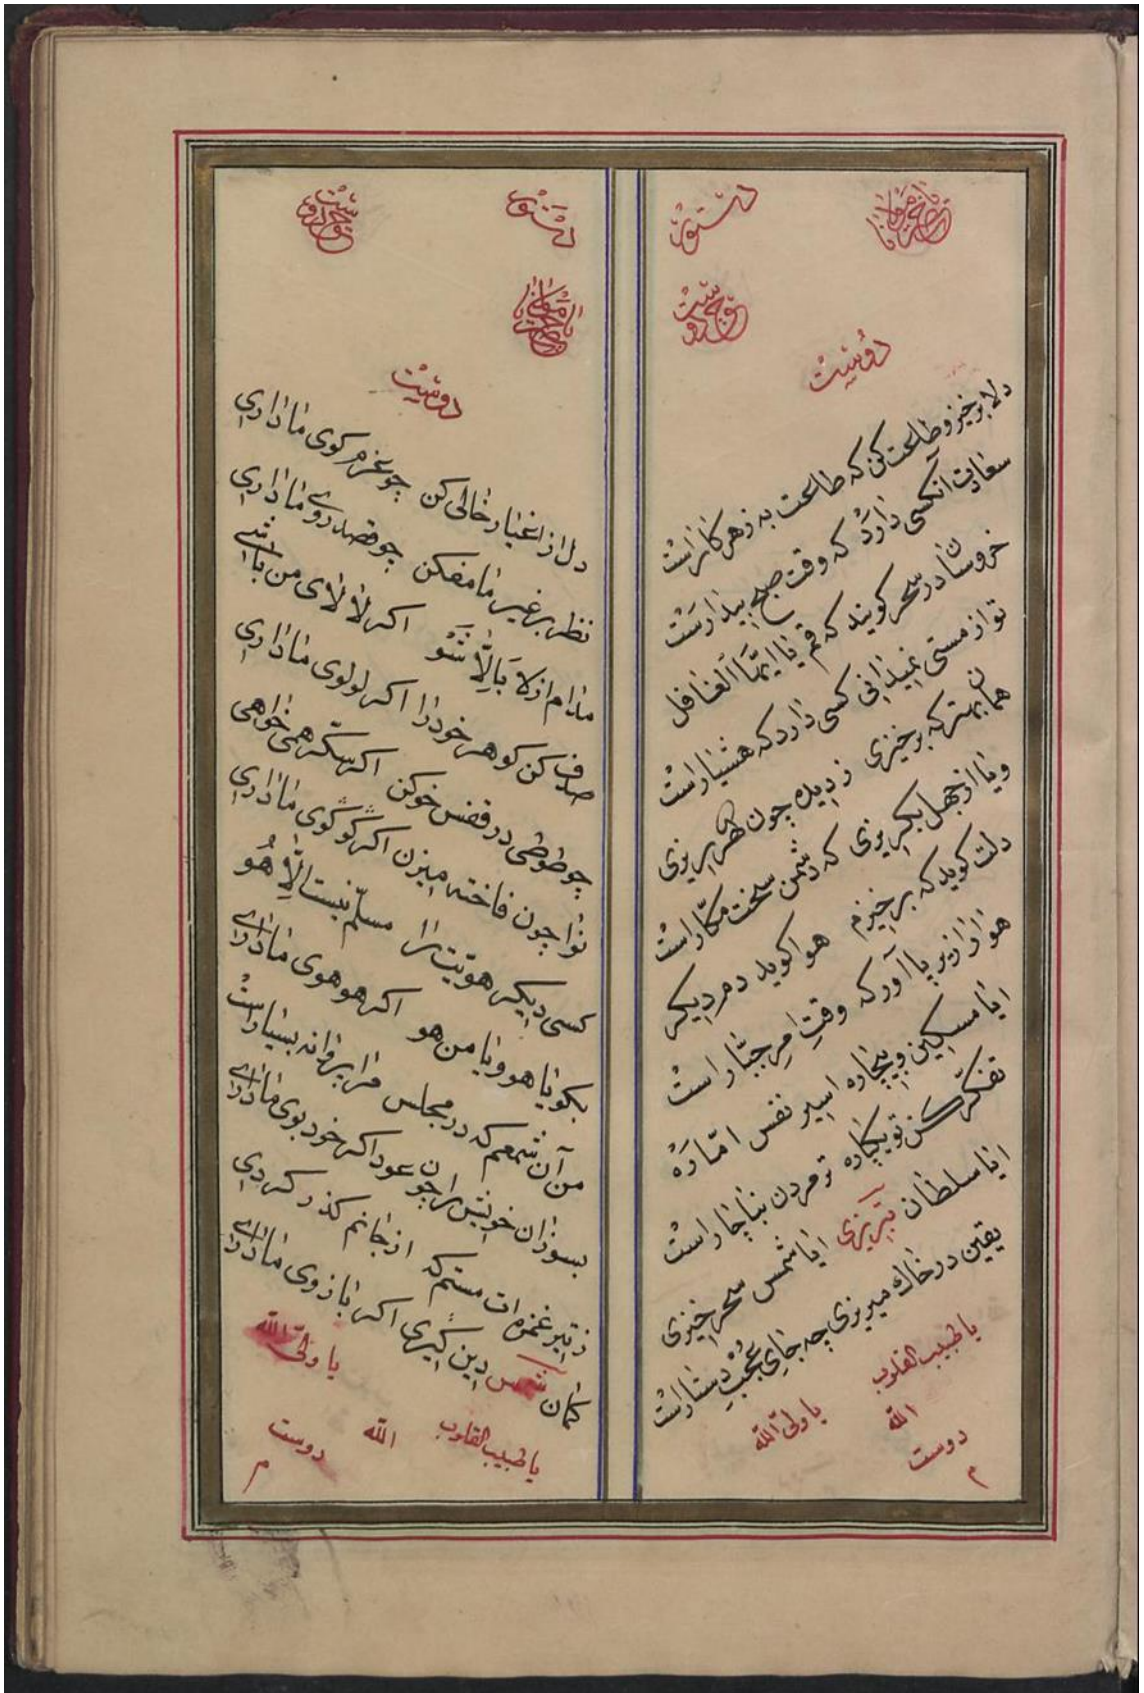 یا حضرت مولانا
دستور
حق دوست
دوست
دلا برخیز و طاعت کن که طاعت به ز هر کار است
سعادت آنکسی دارد که وقت صبح بیدارست
خروسان در سحر کویند که قم یا ایها الغافل
تو از مستی نمیدانی کسی دارد که هشیار است
همان بهتر که برخیزی ز دیده چون کهر ریزی
ویا از جهل بکریزی که دشمن سخت مکّار است
دلت کوید که برخیزم هوا کوید دم دیکر
هوا را زیر پا آور که وقتِ امرِ جبّار است
ایا مسکین و بیچاره اسیر نفس امّاره
تفکّر کن تو یکباره تو مردن بناچار است
ایا سلطان تبریزی ایا شمس سحرخیزی
یقین در خاک میریزی چه جای عُجبِ دستار است
یا طبیب القلوب
یا ولیّ الله
الله
دوست
م
دستور
حق دوست
یا حضرت مولانا
دوست
دل از اغیار خالی کن چو عزم کوی ما داری
نظر بر غیر ما مفکن چو قصد روی ما داری
مدام از لا بَالِاّ شَوْ اکر لالای من باشی
صدف کن کوهر خود را اکر لولوی ما داری
چو طوطی در قفس خو کن اکر سکّر همی خواهی
نوا چون فاخته میزن اکر کوکوی ما داری
کسی دیکر هویّت را مسلّم نیست الّا هُو
بکو یا هو و یا من هو اکر هوهوی ما داری
من آن شمعم که در مجلس مرا پروانه بسیار است
بسوزان خویش را چون عود اکر خود بوی ما داری
ز تیر غمزه ات مستم که از جانم کذر کردی
کمان شمس دین کیری اکر بازوی ما داری
یا ولیّ الله
یا طبیب القلوب
الله
دوست
م